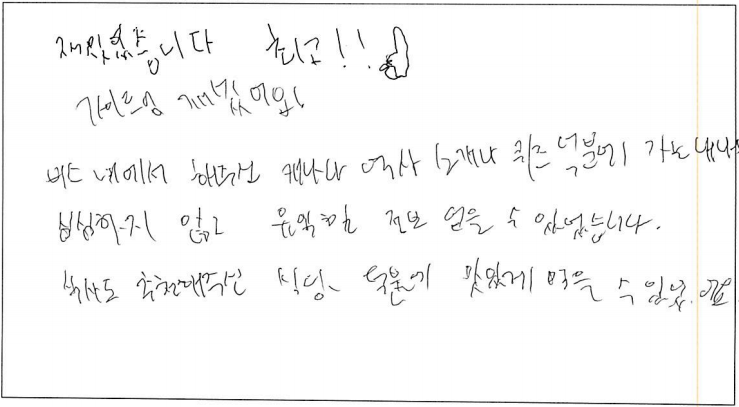 재밌었습니다 최고!!
가이드님 재밌어요!
버스 내에서 해주신 캐나다 역사 소개나 퀴즈 덕분에 가는 내내
심심하지 않고 유익한 정보 얻을 수 있었습니다.
식사도 추천해주신 식당 덕분에 맛있게 먹을 수 있었어요